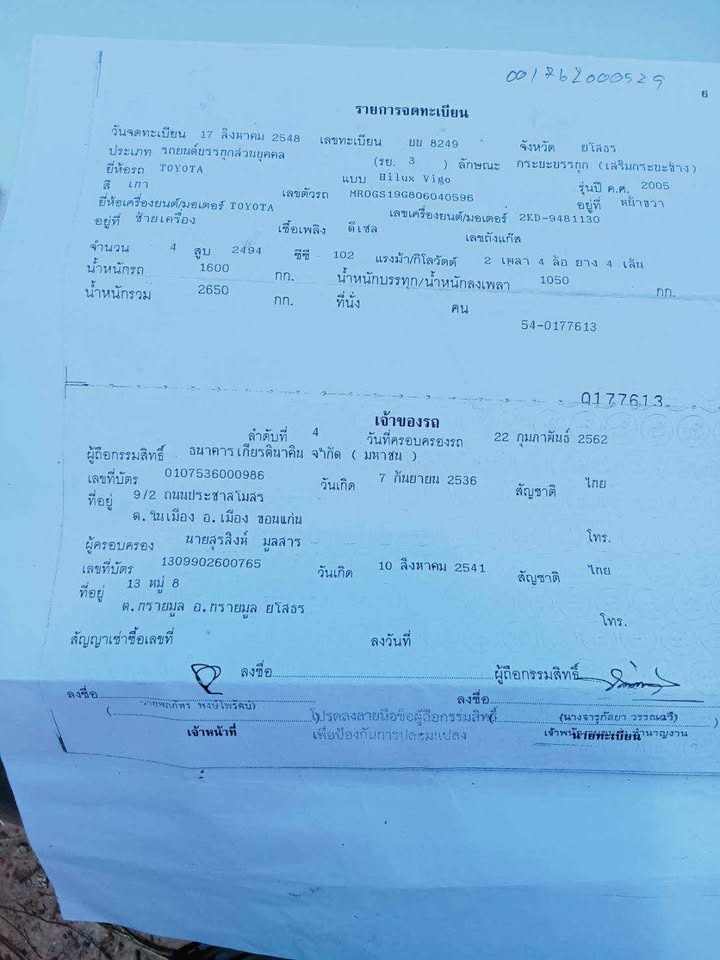 001762000529
6
รายการจดทะเบียน
วันจดทะเบียน 17 สิงหาคม 2548 เลขทะเบียน บบ 8249 จังหวัด ยโสธร
ประเภท รถยนต์บรรทุกส่วนบุคคล (รย. 3 ) ลักษณะ กระบะบรรทุก (เสริมกระบะข้าง)
ยี่ห้อรถ TOYOTA แบบ Hilux Vigo รุ่นปี ค.ศ. 2005
สี เทา เลขตัวรถ MROGS19G806040596 อยู่ที่ หน้าขวา
ยี่ห้อเครื่องยนต์/มอเตอร์ TOYOTA เลขเครื่องยนต์/มอเตอร์ 2KD-9481130
อยู่ที่ ซ้ายเครื่อง เชื้อเพลิง ดีเซล เลขถังแก๊ส
จำนวน 4 สูบ 2494 ซีซี 102 แรงม้า/กิโลวัตต์ 2 เพลา 4 ล้อ ยาง 4 เส้น
น้ำหนักรถ 1600 กก. น้ำหนักบรรทุก/น้ำหนักลงเพลา 1050 กก.
น้ำหนักรวม 2650 กก. ที่นั่ง คน
54-0177613
0177613
เจ้าของรถ
ลำดับที่ 4 วันที่ครอบครองรถ 22 กุมภาพันธ์ 2562
ผู้ถือกรรมสิทธิ์ ธนาคาร เกียรตินาคิน จำกัด ( มหาชน )
เลขที่บัตร 0107536000986 วันเกิด 7 กันยายน 2536 สัญชาติ ไทย
ที่อยู่ 9/2 ถนนประชาสโมสร
ต.ในเมือง อ.เมือง ขอนแก่น
โทร.
ผู้ครอบครอง นายสุรสิงห์ มูลสาร
เลขที่บัตร 1309902600765 วันเกิด 10 สิงหาคม 2541 สัญชาติ ไทย
ที่อยู่ 13 หมู่ 8
ต.ทรายมูล อ.ทรายมูล ยโสธร
โทร.
สัญญาเช่าซื้อเลขที่ ลงวันที่
ลงชื่อ ผู้ถือกรรมสิทธิ์
ลงชื่อ ลงชื่อ
( พงษ์ไพรัตน์) โปรดลงลายมือชื่อผู้ถือกรรมสิทธิ์ (นางจารุกัลยา วรรณฉวี)
เจ้าหน้าที่ เพื่อป้องกันการปลอมแปลง นายทะเบียน ชำนาญงาน